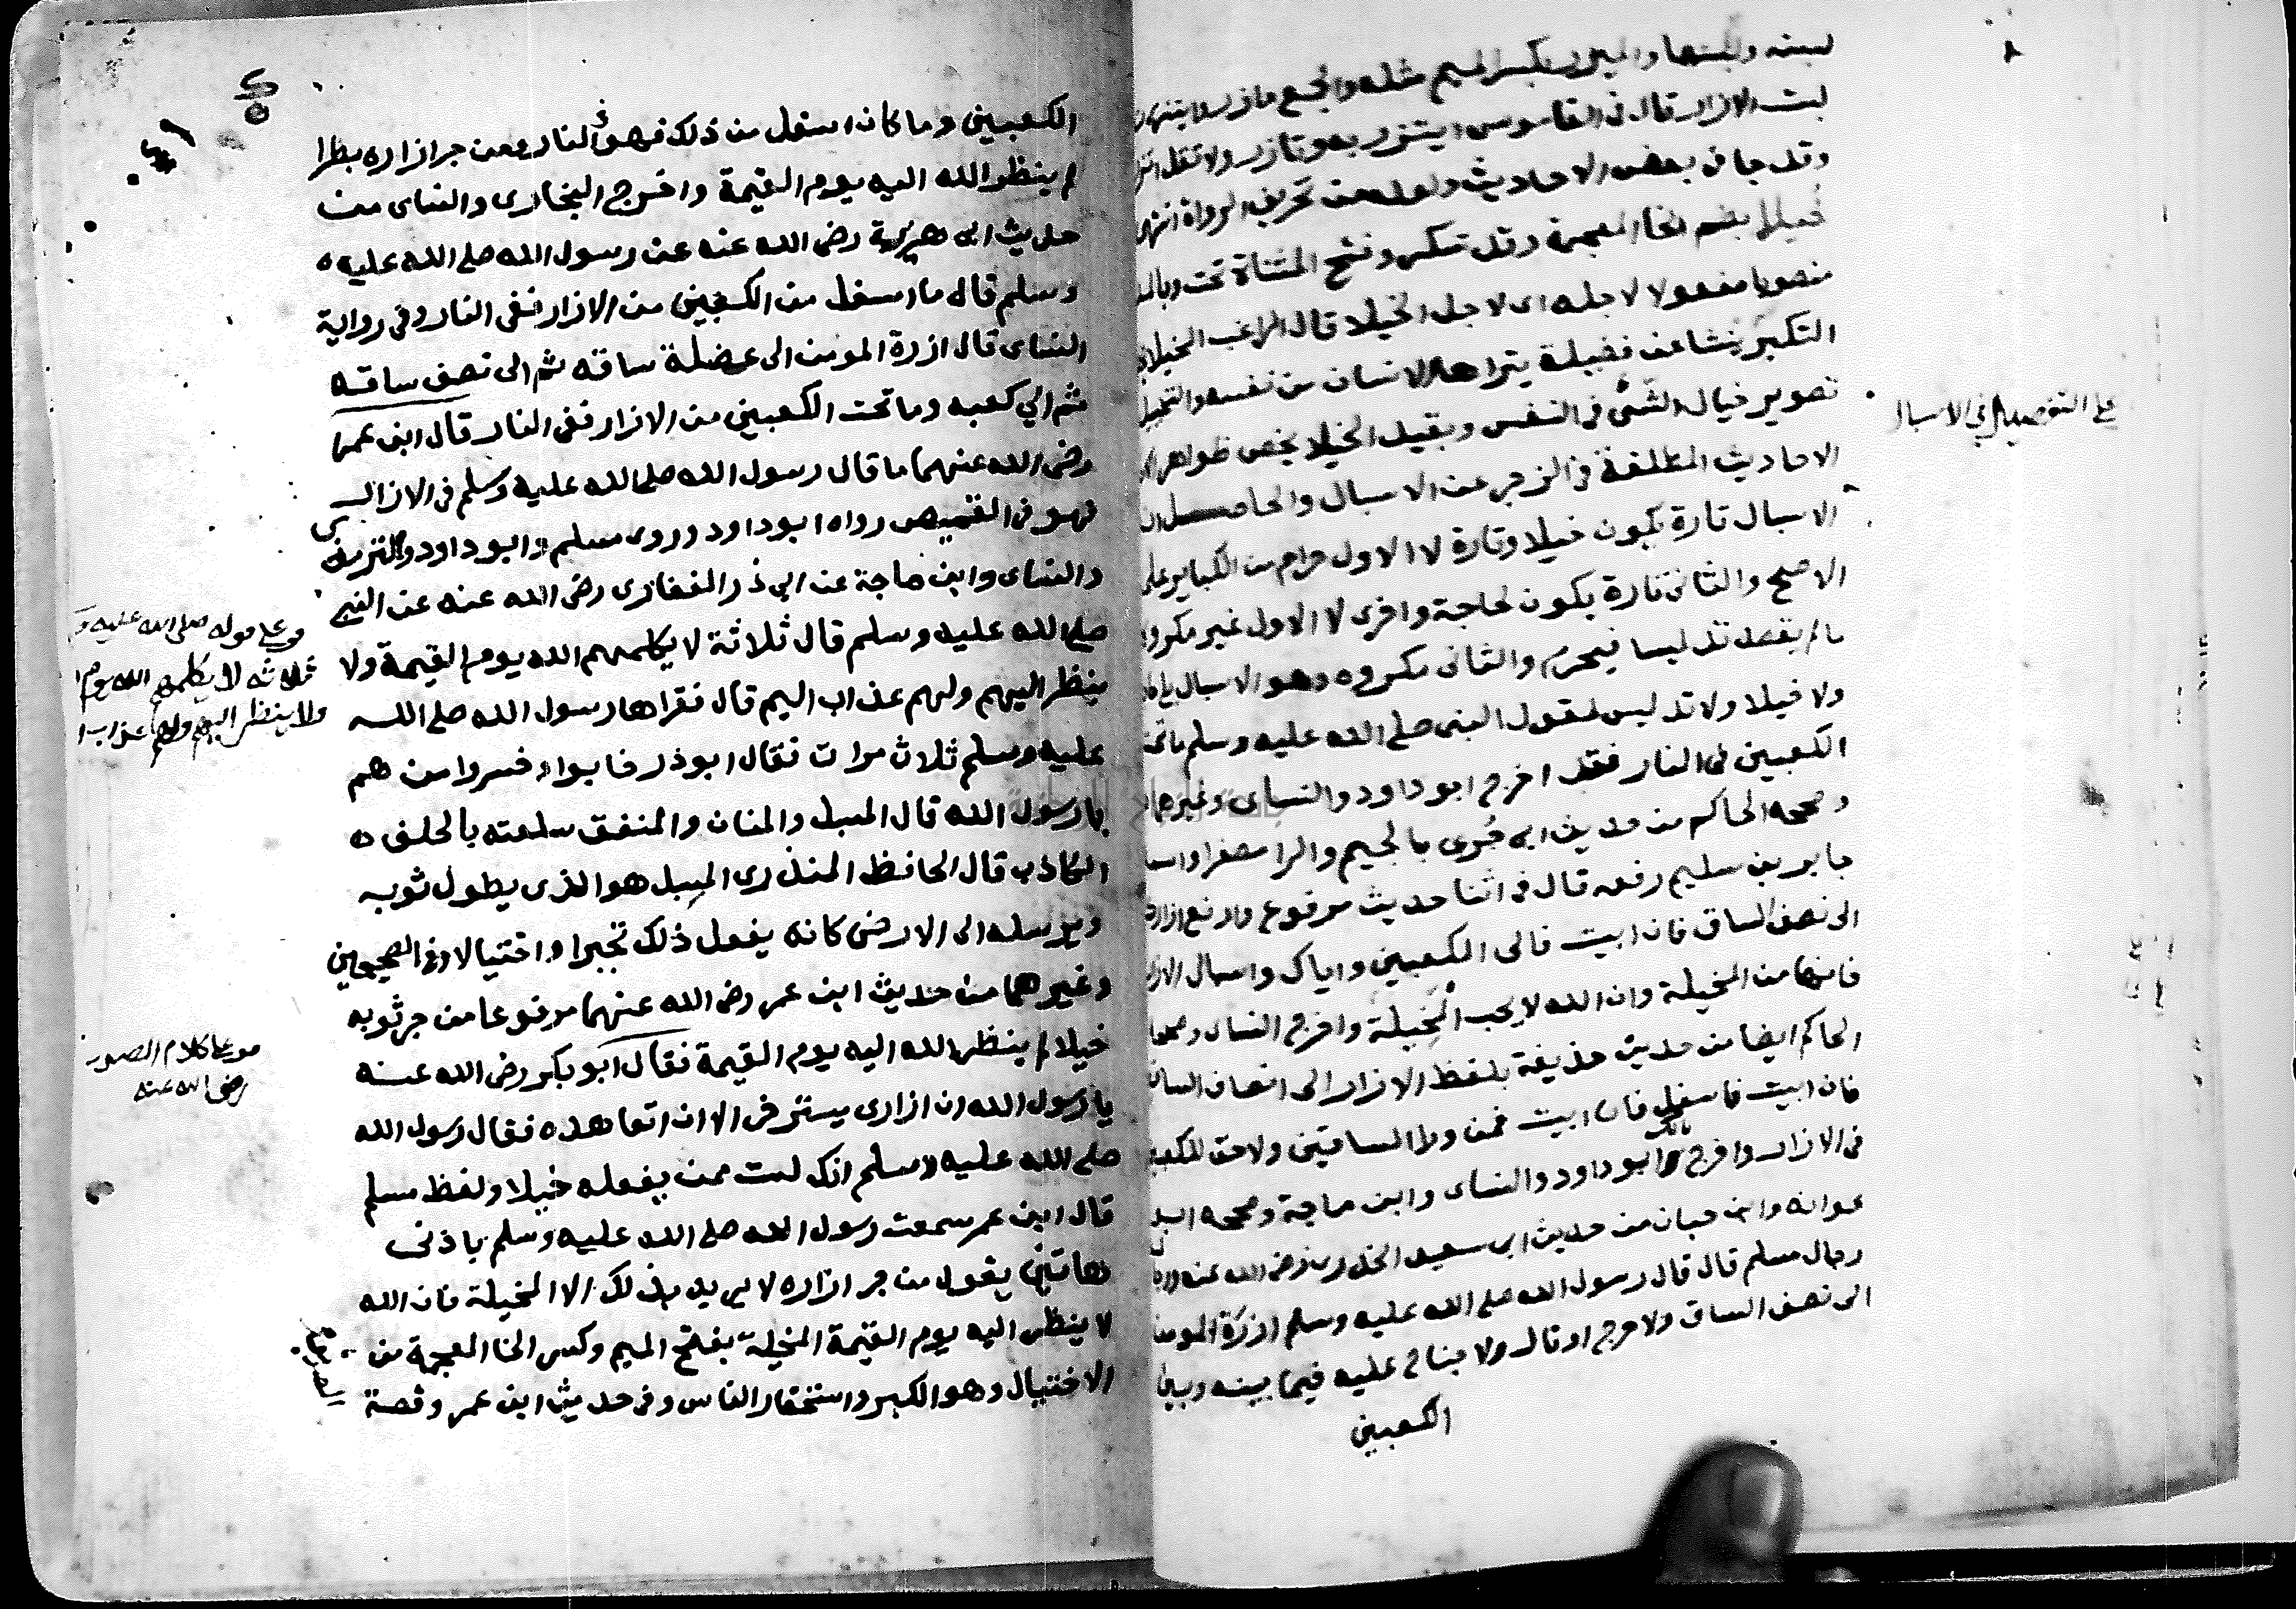 ٨
لبسته ولبستها والميزر بكسر الميم مثله والجمع مازر
لبست الازار قال في القاموس ايتزر به وتازر ولا تقل اتزر
وقد جا في بعض الاحاديث ولعله من تحريف الرواة انتهى
خيلا بضم الخا المعجمة وقد تكسر وفتح المثناة تحت وبالمد
منصوبا مفعولا لاجله اى لاجل الخيلا قال الراغب الخيلا
التكبر ينشا عن فضيلة يتراها الانسان من نفسه والتخييل
تصوير خيال الشى في النفس وبقيد الخيلا يخص ظواهر
الاحاديث المطلقة في الزجر عن الاسبال والحاصل ان
الاسبال تارة يكون خيلا وتارة لا الاول حرام من الكباير على
الاصح والثانى تارة يكون لحاجة واخرى لا الاول غير مكروه
مالم يقصد تدليسا فيحرم والثانى مكروه وهو الاسبال بلا
ولا خيلا ولا تدليس لقول النبى صلى الله عليه وسلم ماتحت
الكعبين فى النار فقد اخرج ابو داود والنساى وغيرهما
وصححه الحاكم من حديث ابى جرى بالجيم والرا مصغرا واسمه
جابر بن سليم رفعه قال فى اثنا حديث مرفوع وارفع ازارك
الى نصف الساق فان ابيت فالى الكعبين واياك واسبال الازار
فانها من المخيلة وان الله لا يحب المخيلة واخرج النساى وصححه
الحاكم ايضا من حديث حذيفة بلفظ الازار الى انصاف الساقين
فان ابيت فاسفل فان ابيت فمن ورا الساقين ولا حق للكعبين
فى الازار واخرج مالك وابو داود والنساى وابن ماجة وصححه ابو
عوانه وابن حبان من حديث ابى سعيد الخدرى رضى الله عنه
رجال مسلم قال قال رسول الله صلى الله عليه وسلم ازرة المومن
الى نصف الساق ولا حرج او قال ولا جناح عليه فيما بينه وبين
الكعبين
على التفصيل في الاسبال
الكعبين وما كان اسفل من ذلك فهو فى النار ومن جر ازاره بطرا
لم ينظر الله اليه يوم القيمة واخرج البخارى والنساى من
حديث ابى هريرة رضى الله عنه عن رسول الله صلى الله عليه
وسلم قال ما اسفل من الكعبين من الازار ففى النار وفى رواية
النساى قال ازرة المومن الى عضلة ساقه ثم الى نصف ساقه
ثم الى كعبه وما تحت الكعبين من الازار ففى النار قال ابن عمر
رضى الله عنهما ما قال رسول الله صلى الله عليه وسلم فى الازار
فهو فى القميص رواه ابو داود وروى مسلم وابو داود والترمذى
والنساى وابن ماجة عن ابي ذر الغفارى رضى الله عنه عن النبي
صلى الله عليه وسلم قال ثلاثة لا يكلمهم الله يوم القيمة ولا
ينظر اليهم ولهم عذاب اليم قال فقراها رسول الله صلى الله
عليه وسلم ثلاث مرات فقال ابو ذر خابوا وخسروا من هم
يا رسول الله قال المسبل والمنان والمنفق سلعته بالحلف
الكاذب قال الحافظ المنذرى المسبل هو الذى يطول ثوبه
ويرسله الى الارض كانه يفعل ذلك تجبرا واختيالا وفى الصحيحين
وغيرهما من حديث ابن عمر رضى الله عنهما مرفوعا من جر ثوبه
خيلا لم ينظر الله اليه يوم القيمة فقال ابو بكر رضى الله عنه
يا رسول الله ان ازارى يسترخى الا ان اتعاهده فقال رسول الله
صلى الله عليه وسلم انك لست ممن يفعله خيلا ولفظ مسلم
قال ابن عمر سمعت رسول الله صلى الله عليه وسلم باذنى
هاتين يقول من جر ازاره لا يريد بذلك الا المخيلة فان الله
لا ينظر اليه يوم القيمة المخيلة بفتح الميم وكسر الخا المعجمة من
الاختيال وهو الكبر واستحقار الناس وفى حديث ابن عمر وقصة
على قوله صلى الله عليه
ثلاثه لا يكلمهم الله يوم
ولا ينظر اليهم ولهم عذاب
كلام الصديق
رضى الله عنه